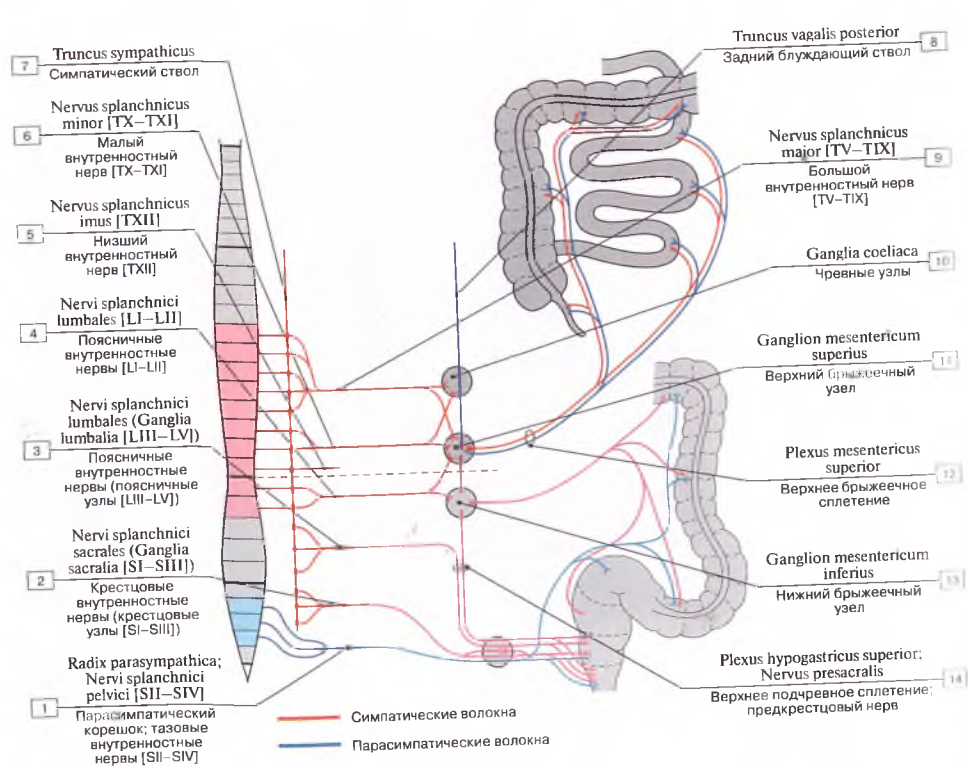 7
Truncus sympathicus
Симпатический ствол
Nervus splanchnicus
minor [TX–TXI]
6
Малый
внутренностный
нерв [TX–TXI]
Nervus splanchnicus
imus [TXII]
5
Низший
внутренностный
нерв [TXII]
Nervi splanchnici
lumbales [LI–LII]
4
Поясничные
внутренностные
нервы [LI–LII]
Nervi splanchnici
lumbales (Ganglia
lumbalia [LIII–LV])
3
Поясничные
внутренностные
нервы (поясничные
узлы [LIII–LV])
Nervi splanchnici
sacrales (Ganglia
sacralia [SI–SIII])
2
Крестцовые
внутренностные
нервы (крестцовые
узлы [SI–SIII])
Radix parasympathica;
Nervi splanchnici
pelvici [SII–SIV]
1
Парасимпатический
корешок; тазовые
внутренностные
нервы [SII–SIV]
Truncus vagalis posterior
8
Задний блуждающий ствол
Nervus splanchnicus
major [TV–TIX]
9
Большой
внутренностный нерв
[TV–TIX]
Ganglia coeliaca
10
Чревные узлы
Ganglion mesentericum
superius
11
Верхний брыжеечный
узел
Plexus mesentericus
superior
12
Верхнее брыжеечное
сплетение
Ganglion mesentericum
inferius
13
Нижний брыжеечный
узел
Plexus hypogastricus superior;
Nervus presacralis
14
Верхнее подчревное сплетение;
предкрестцовый нерв
Симпатические волокна
Парасимпатические волокна